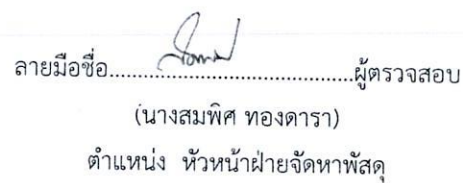 ลายมือชื่อ.......................................ผู้ตรวจสอบ
(นางสมพิศ ทองดารา)
ตำแหน่ง หัวหน้าฝ่ายจัดหาพัสดุ